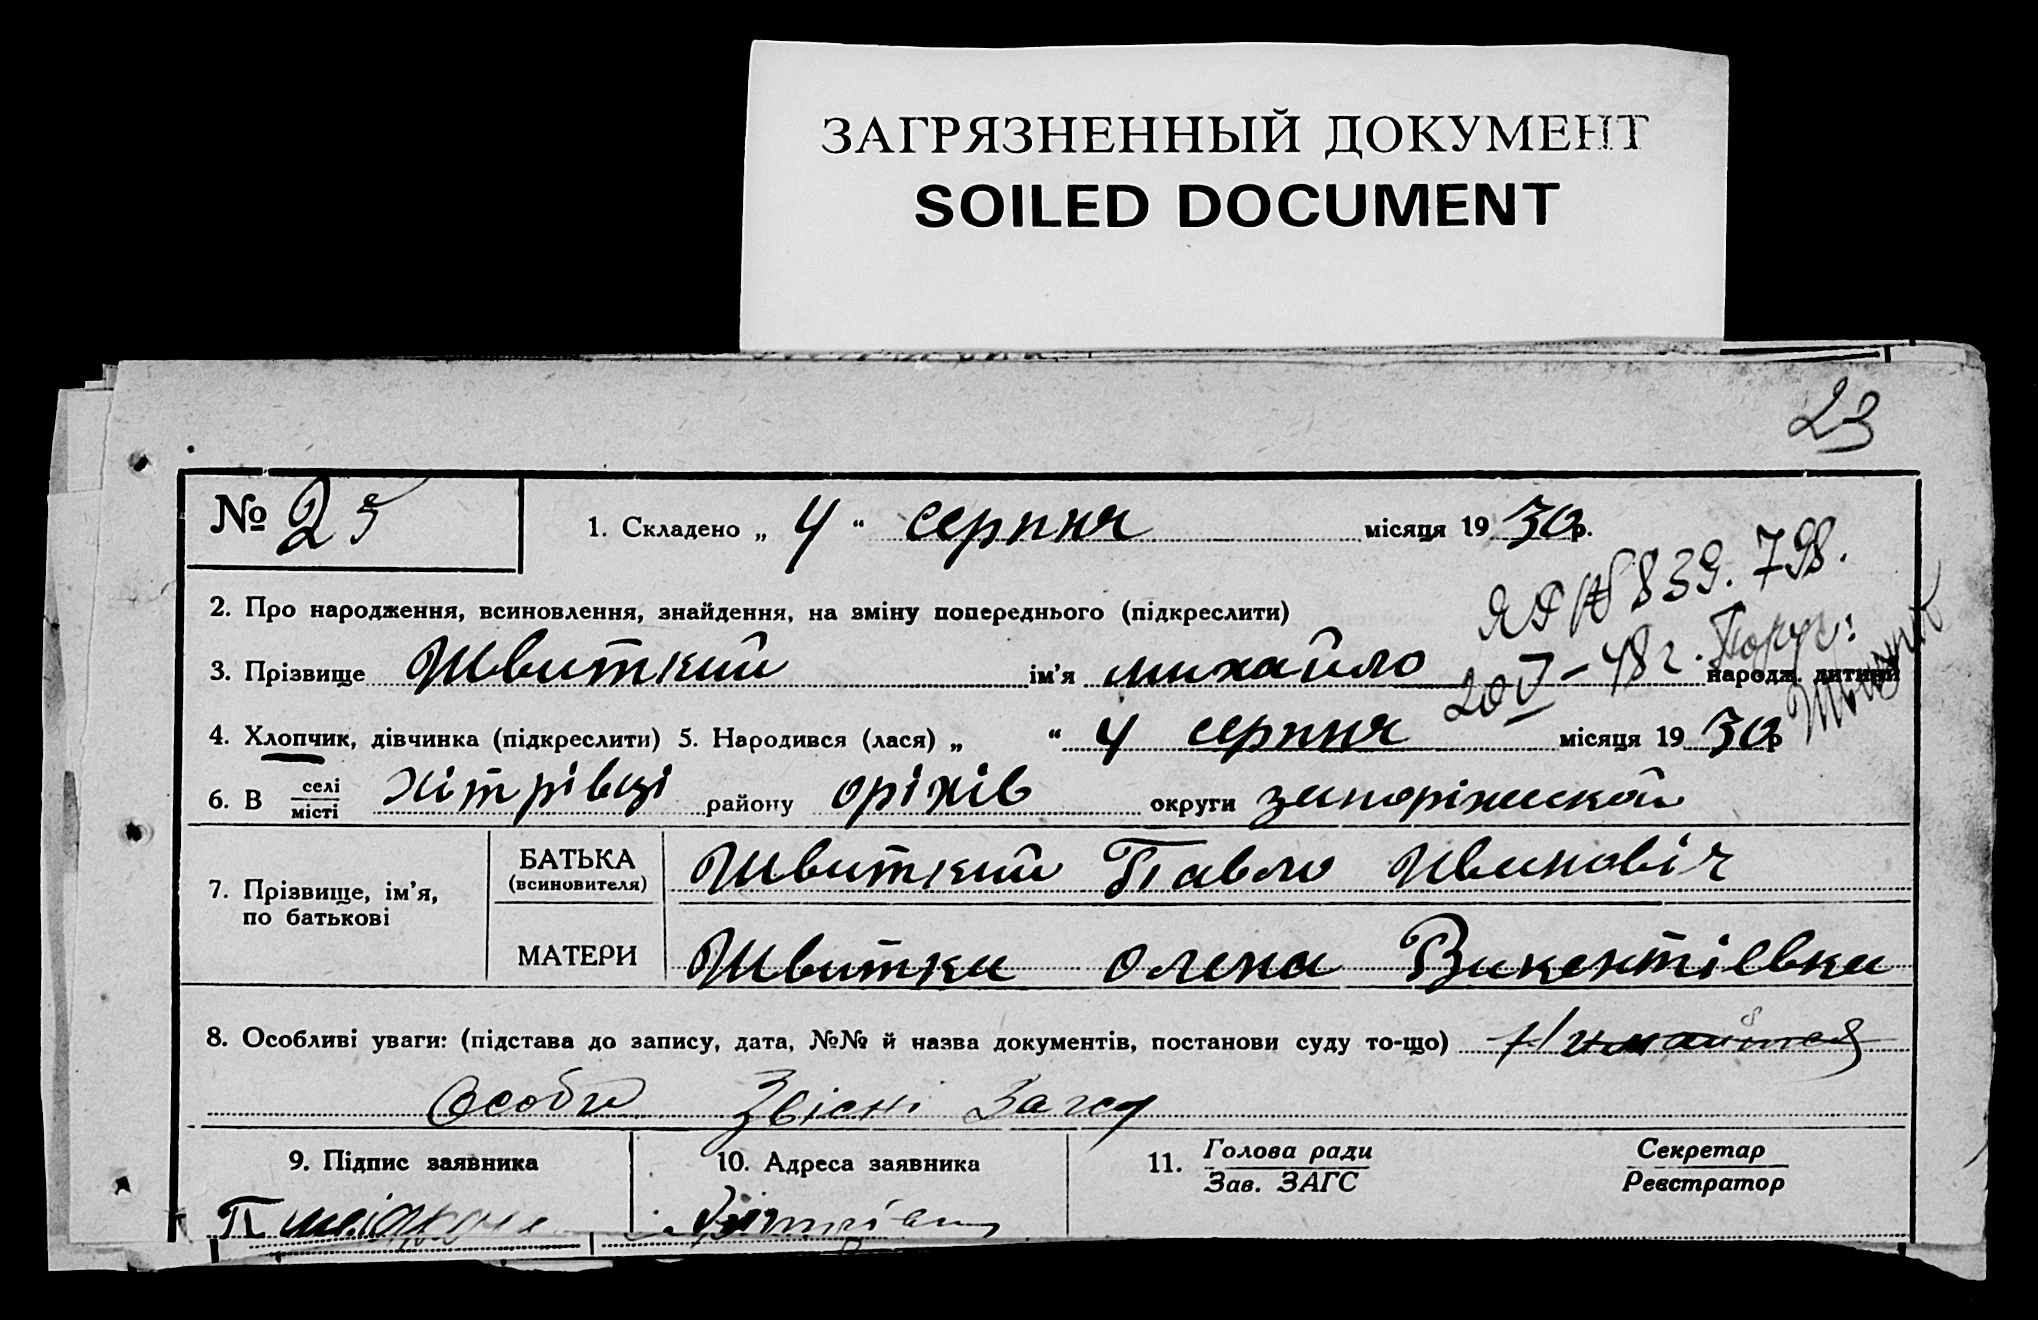 ЗАГРЯЗНЕННЫЙ ДОКУМЕНТ
SOILED DOCUMENT
23
№ 25
1. Складено „ 4 “ серпня місяця 19 30 р.
2. Про народження, всиновлення, знайдення, на зміну попереднього (підкреслити)
ЯФ № 839.798.
3. Прізвище Швиткий ім'я михайло народж. дитини
20 V – 48 г.
4. Хлопчик, дівчинка (підкреслити) 5. Народився (лася) „ “ 4 серпня місяця 19 30 р
6. В селі місті Хітрівці району оріхів округи запоріжской
7. Прізвище, ім'я, по батькові
БАТЬКА (всиновителя) Швиткий Павло Ивановіч
МАТЕРИ Швитка олена Викентіевка
8. Особливі уваги: (підстава до запису, дата, №№ й назва документів, постанови суду то-що)
особи Звісні Загсу
9. Підпис заявника
10. Адреса заявника
11. Голова ради Секретар
Зав. ЗАГС Реєстратор